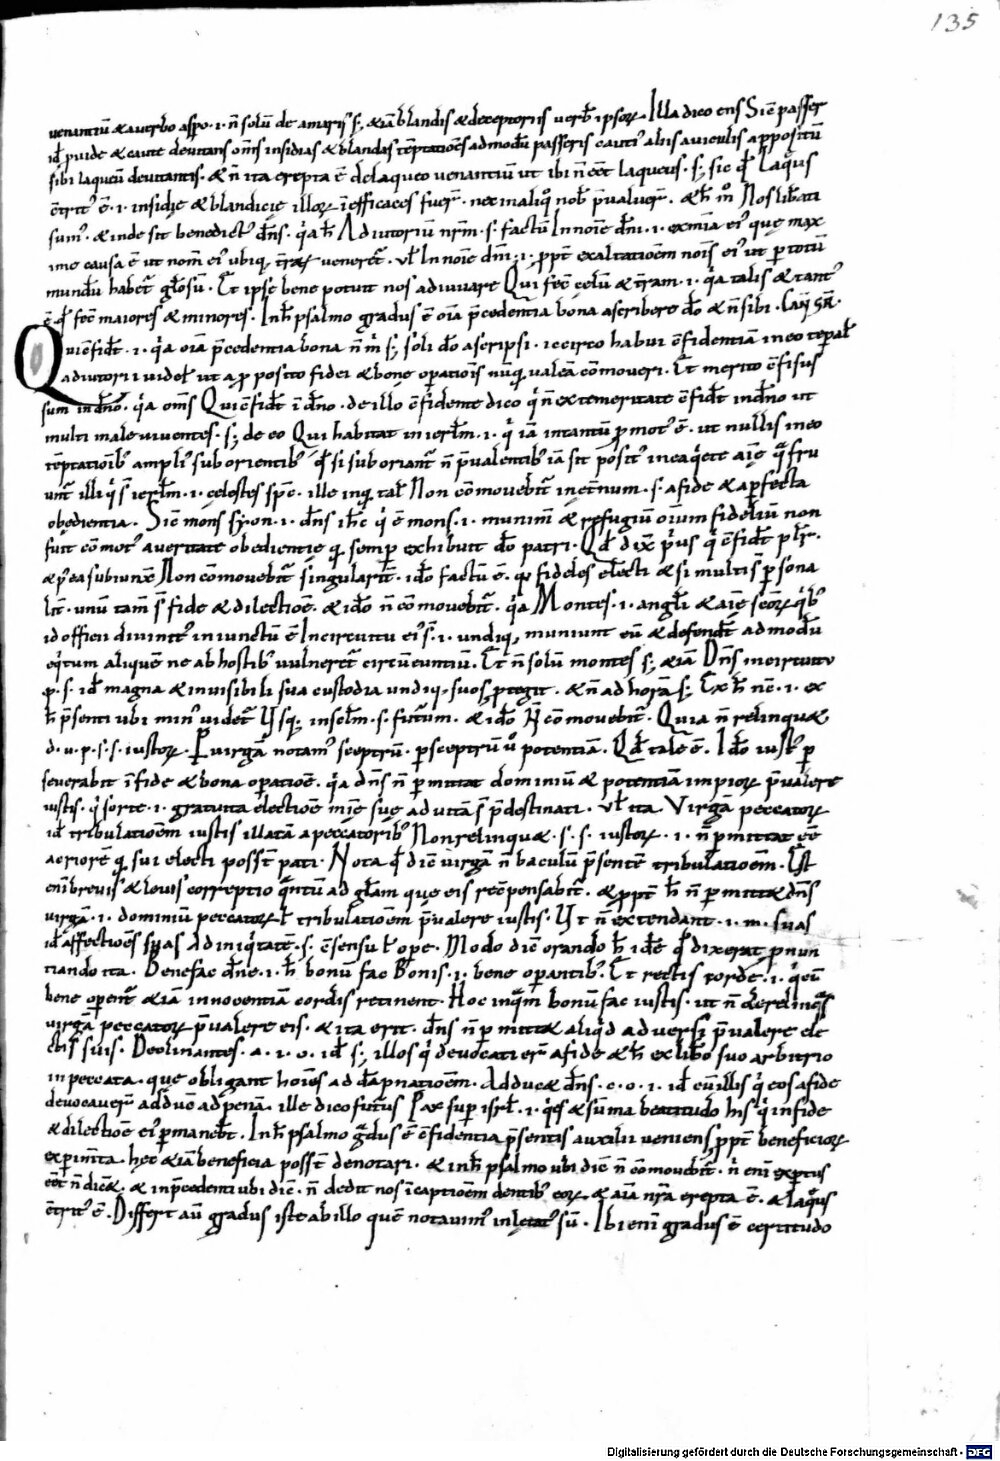 135
venantiū & a verbo asp̄o · i · n̄ solū de amaris s; & iā blandis & deceptoriis verb̄ ipsoꝝ. Illa dico ens Sic̄ passer
id̄ p̄vide & caute devitans om̄s insidias & blandas tēptatiōes ad modū passeris cauti⁹ aliis aviculis appositū
sibi laqueū devitantis · & n̄ ita erepta ē de laqueo venantiū ut ibi n̄ eēt laqueus · s; sic qd̄ Laq̄us
c̄trit⁹ ē · i · insidię & blandicię illoꝝ īefficaces fuer̄ · nec in aliq° nob̄ p̄valuer̄ · & h̄ m° Nos lib̄ati
sum⁹ · & inde sit benedict⁹ dn̄s · q̄a h̄ Adiutoriū nr̄m · s · factū In noīe dn̄i · i · ex mīa ei⁹ que max
ime causa ē ut nom̄ ei⁹ ubiq; veneret̄ · ul̄ In noīe dn̄i · i · p̄pt̄ exaltatiōem noīs ei⁹ ut p totū
mundū habet̄ gl̄osū · Et ipse bene potuit nos adiuvare Qui fec̄ celū & t̄ram · i · q̄a talis & tant⁹
ē qd̄ fec̄ maiores & minores · In h̄ psalmo gradus ē oīa p̄cedentia bona ascribere dō & n̄ sibi ·
Qui cfidt̄ · i · q̄a oīa p̄cedentia bona n̄ m̄ s; soli dō ascripsi · iccirco habui cfidentiam in eo
adiutorii videl̄ ut a p̄posito fidei & bonę op̄ationis nūq̄ valeā cōmoveri · Et merito cfisus
sum in dn̄o · q̄a om̄s Qui cfidt̄ ī dn̄o · de illo cfidente dico q̄ n̄ ex temeritate cfidt̄ in dn̄o ut
multi male viventes · s; de eo Qui habitat in ierl̄m · i · q̄ iā in tantū p̄mot⁹ ē · ut nullis in eo
tēptationib⁹ ampli⁹ suborientib⁹ qd̄ si suboriant̄ n̄ p̄valentib⁹ iā sit posit⁹ in ea q̄ete aīę q̄ fru
unt̄ illi q̄ s̄ ierl̄m · i · celestes sp̄c · ille inq̄ tal̄ Non cōmovebit̄ in et̄num · s · a fide & a p̄fecta
obedientia · Sic̄ mons syon · i · dn̄s ih̄c q̄ ē mons · i · munim̄ & refugiū oīum fideliū non
fuit cōmot⁹ a veritate obedientię q̄ semp exhibuit dō patri · Qd̄ dix̄ p̄us q̄ cfidt̄ plr̄ ·
& p̄ea subiunx̄ Non cōmovebit̄ singularit̄ · idō factū ē · qd̄ fideles elēcti & si multi s̄ p̄sona
lit̄ · unū tam̄ s̄ fide & dilectiōe · & idō n̄ cōmovebit̄ · q̄a Montes · i · angl̄i & aīę scōꝝ q̄b⁹
id officii divinit⁹ iniunctū ē In circuitu ei⁹ s̄ · i · undiq; muniunt eū & defendt̄ ad modū
eq̄tum aliquē ne ab hostib⁹ vulneret̄ circūeuntiū · Et n̄ solū montes s; & iā Dn̄s in circuitu
p · s · id̄ magna & invisibili sua custodia undiq; suos p̄tegit · & n̄ ad horā s; Ex h̄ nc̄ · i · ex
h̄ p̄senti ubi min⁹ videt̄ Usq; in sclm̄ · s · futurum · & idō N̄ cōmovebit̄ · Quia n̄ relinqu&
d · v · p · s · s · iustoꝝ · P virgā notam⁹ sceptrū · p sceptrū ū potentiā · Qd̄ tale ē · Idō iust⁹ p
severabit ī fide & bona op̄atiōe · q̄a dn̄s n̄ p̄mittat dominiū & potentiā impioꝝ p̄valere
iustis · q̄ sorte · i · gratuita electiōe mīę suę ad vitā s̄ p̄destinati · ul̄ ita · Virgā peccatoꝝ
id̄ tribulatiōem iustis illatā a peccatorib⁹ Non relinqu& · s · s · iustoꝝ · i · n̄ p̄mittat eē
acriorē q̄ sui electi posst̄ pati · Nota qd̄ dic̄ virgā n̄ baculū p̄sentē tribulatiōem · Est
enī brevis & levis correptio q̄ntū ad gl̄am que eis recpensabit̄ · & p̄pt̄ h̄ n̄ p̄mitt& dn̄s
virgā · i · dominiū peccatoꝝ ł tribulatiōem p̄valere iustis · Ut n̄ extendant · i · m · suas
id̄ affectiōes suas Ad iniq̄tatē · s · csensu ł ope · Modo dic̄ orando h̄ idē qd̄ dixerat p̄nun
tiando ita · Benefac dn̄e · i · h̄ bonū fac Bonis · i · bene op̄antib⁹ · Et rectis corde · i · q̄ cū
bene opent̄ & iā innocentiā cordis retinent · Hoc inq̄m bonū fac iustis · ut n̄ derelinq̄s
virgā peccatoꝝ p̄valere eis · & ita erit · dn̄s n̄ p̄mitt& aliq̄d adversi p̄valere ele
ctis suis · Declinantes · a · i · o · id̄ s; illos q̄ devocati er̄ a fide & h̄ ex lib̄o suo arbitrio
in peccata · que obligant hoīes ad dāpnatiōem · Adduc& dn̄s · c · o · i · id̄ cū illis q̄ eos a fide
devocaver̄ adduc̄ ad penā · ille dico futur̄us Pax sup isrl̄ · i · q̄es & sūma beatitudo his q̄ in fide
& dilectiōe ei⁹ p̄manebt̄ · In h̄ psalmo gradus ē cfidentia p̄sentis auxilii veniens p̄pt̄ beneficioꝝ
expim̄ta · hęc & iā beneficia posst̄ denotari · & in h̄ psalmo ubi dic̄ n̄ cōmovebit̄ · n̄ enī exptus
eēt n̄ dic& · & in p̄cedenti ubi dic̄ · n̄ dedit nos ī captiōem dentib⁹ eoꝝ · & aīa nr̄a erepta ē · & laq̄us
c̄trit⁹ ē · Differt aū gradus iste ab illo quē notavim⁹ in letat⁹ sū · Ibi enī gradus ē certitudo
Digitalisierung gefördert durch die Deutsche Forschungsgemeinschaft - DFG